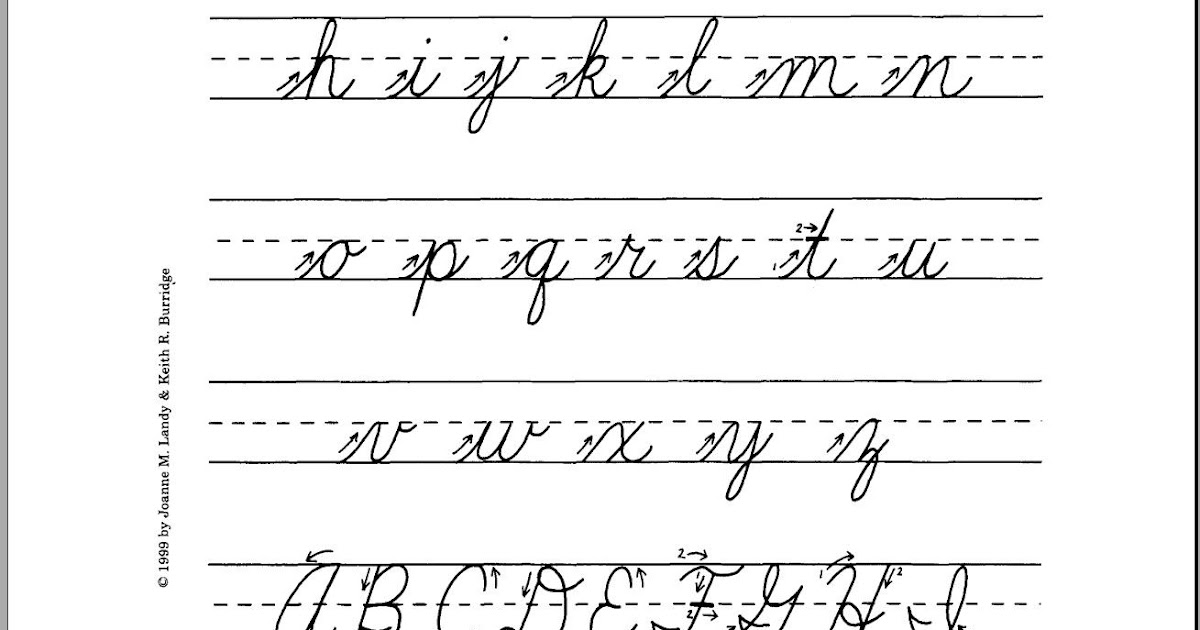 h i j k l m n
o p q r s t u
v w x y z
A B C D E F G H I
© 1999 by Joanne M. Landy & Keith R. Burridge